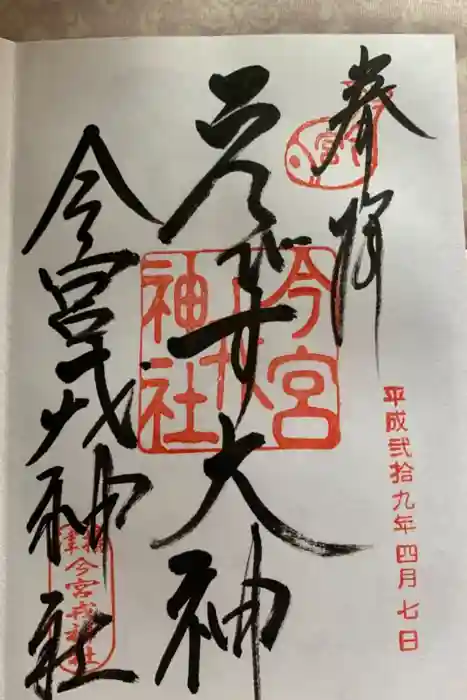 奉拝
平成弐拾九年四月七日
ゑびす大神
今宮戎神社
今宮戎神社
今宮戎神社